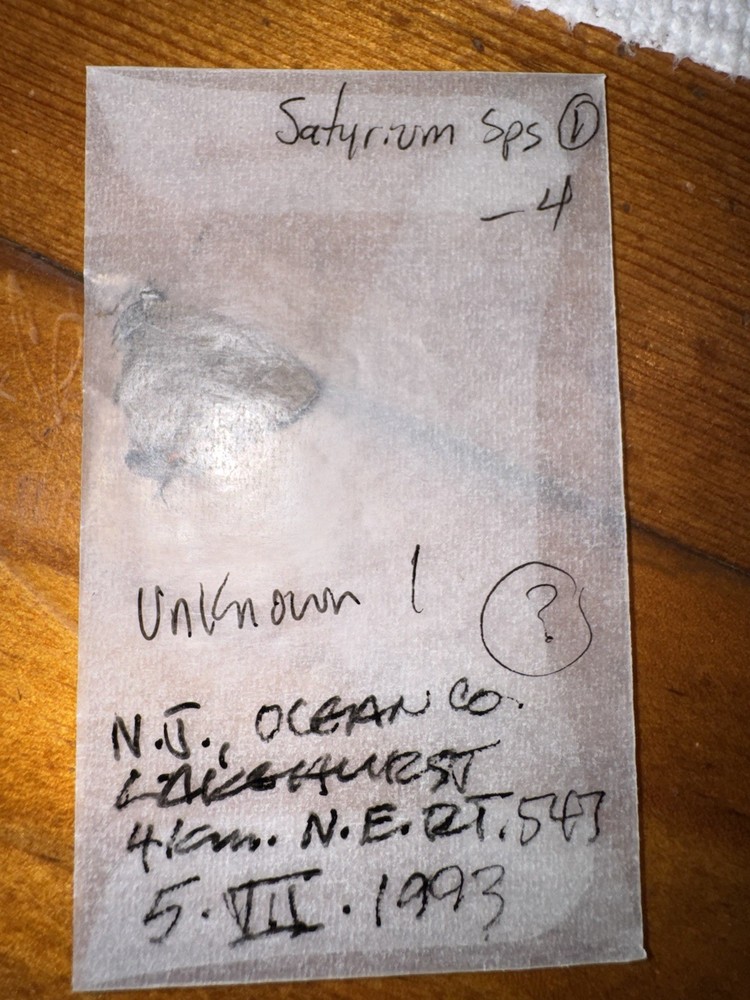 Satyrium sps ①
– 4
Unknown 1 ?
N.J., OCEAN CO.
LAKEHURST
4 km. N.E. RT. 547
5. VII. 1993